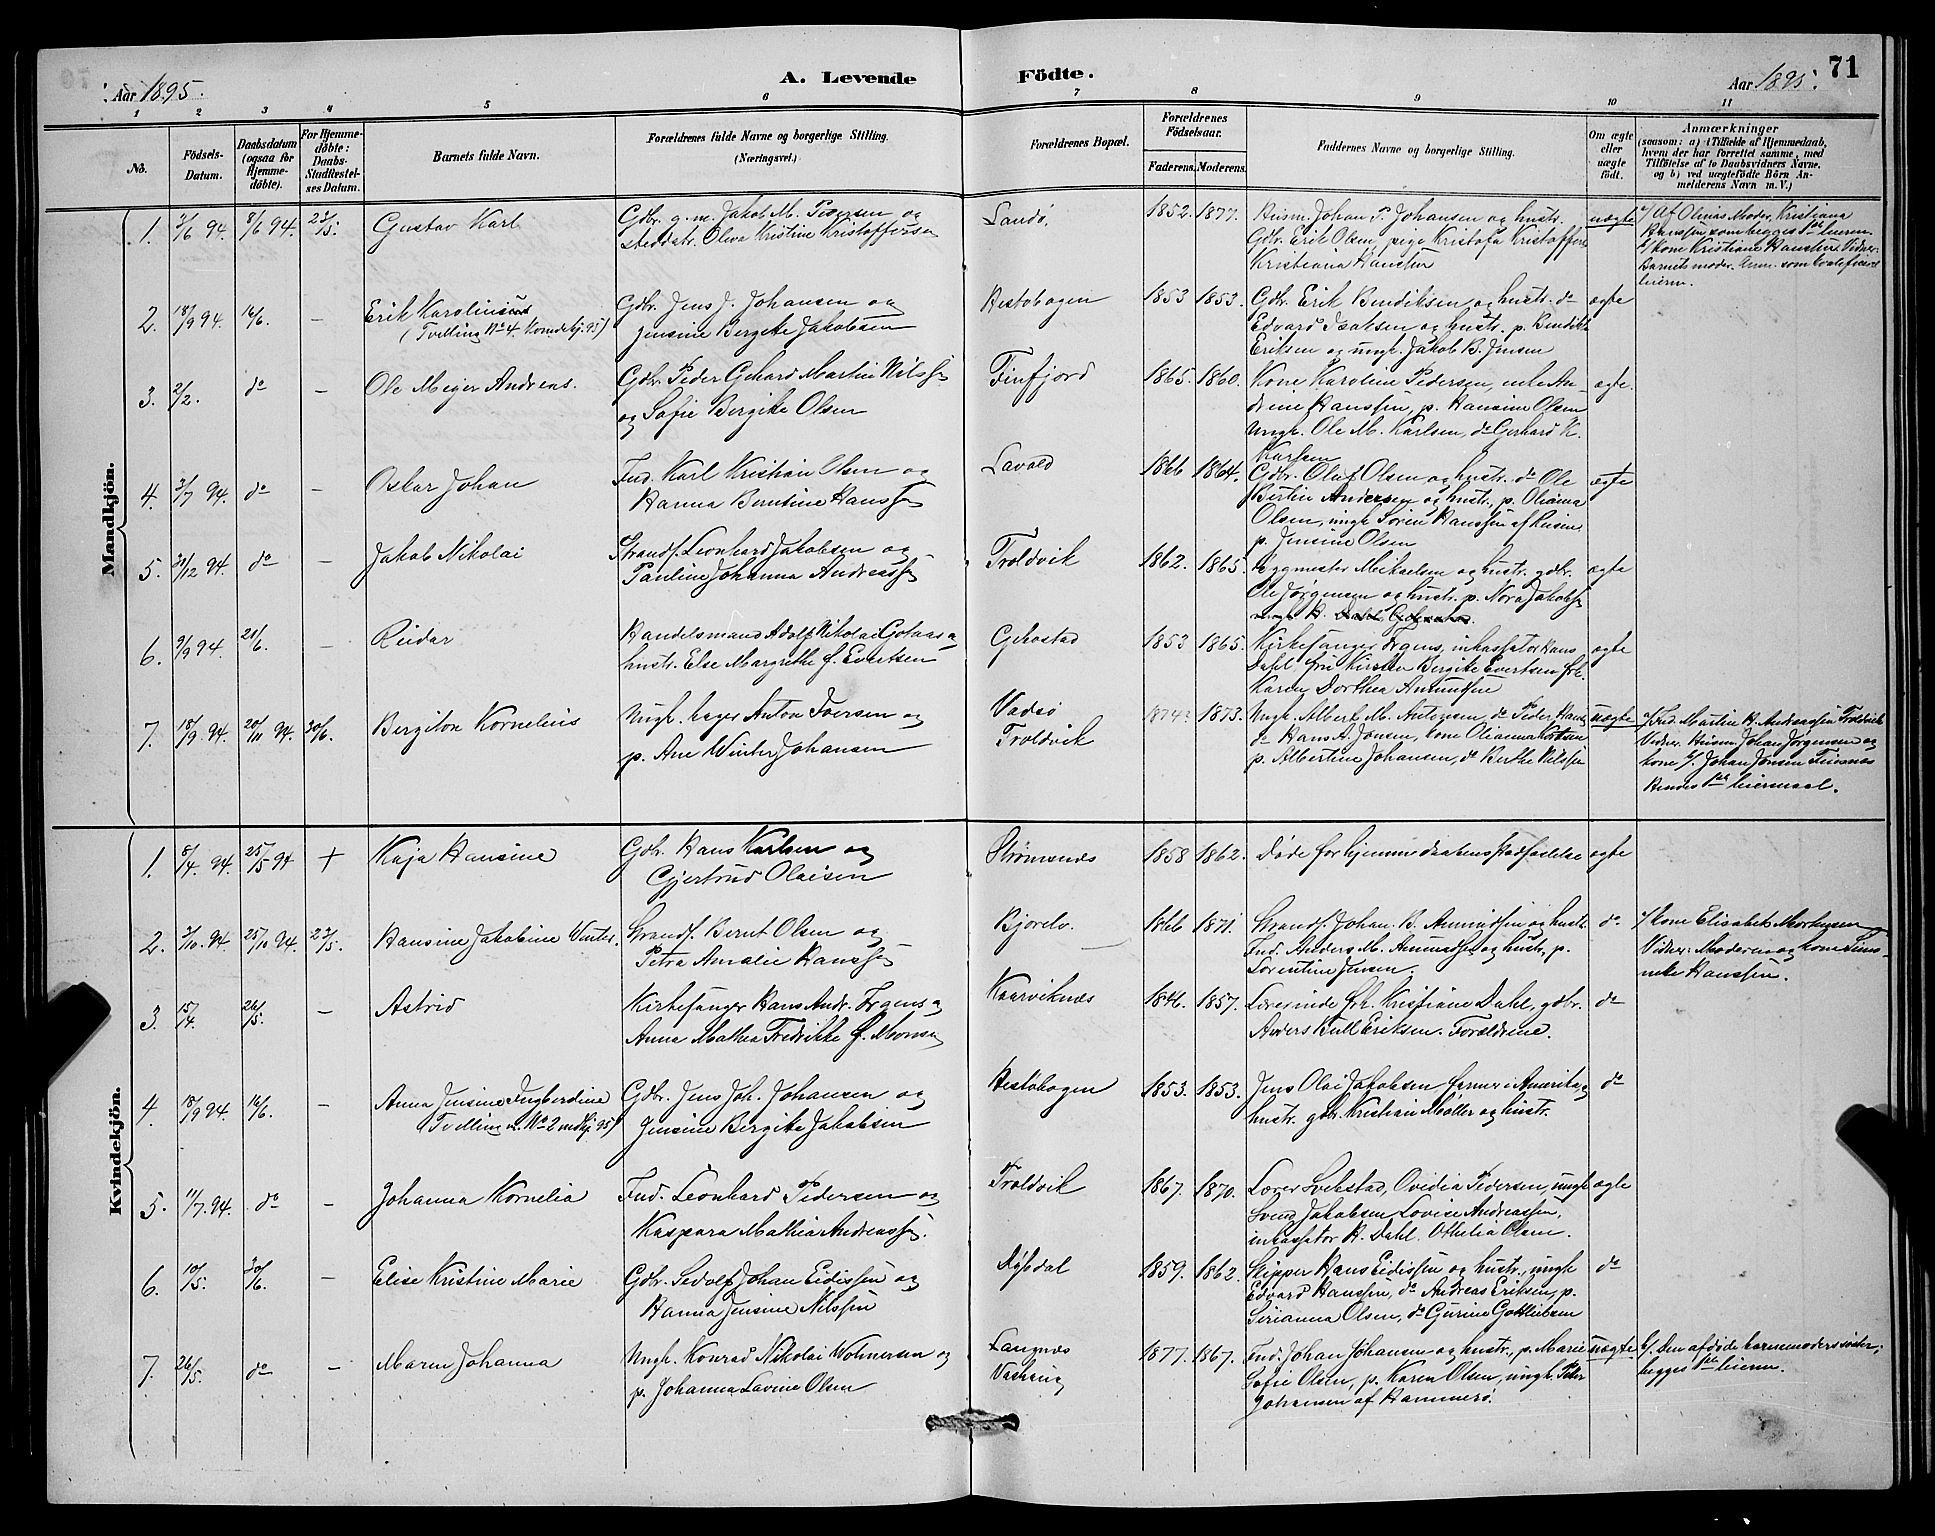 Aar 1895.
A. Levende Födte.
Aar 1895.
71
1 2 3 4 5 6 7 8 9 10 11
No.
Födsels-
Datum.
Daabsdatum
(ogsaa for
Hjemme-
døbte).
For Hjemme-
døbte:
Daabs-
Stadfæstel-
ses Datum.
Barnets fulde Navn.
Forældrenes fulde Navne og borgerlige Stilling.
(Næringsvei.)
Forældrenes Bopæl.
Forældrenes
Födselsaar.
Faderens. Moderens.
Faddernes Navne og borgerlige Stilling.
Om ægte
eller
uægte
født.
Anmærkninger
(saasom: a) i Tilfælde af Hjemmedaab,
hvem der har forrettet samme, med
Tilföielse af to Daabsvidners Navne.
og b) ved uægtefödte Börn An-
melderens Navn m. V.)
Mandkjön.
1. 3/6 94. 8/6 94. 23/5. Gustav Karl
Gdbr. g. m. Jakob M. Pedersen og
Oliva Kristine Kristoffersen
Sandø. 1852. 1877.
Husm. Johan P. Johansen og hustr.
Gdbr. Erik Olsen, pige Kristofa Kristoffers
Kristiana Hansen
uægte
a/ Af Olinas Moder, Kristiana
Hanssen, som begges leierm.
b/ Kone Kristiane Hansen. Vidner:
Barnets moder. som kvalificeret
leierm.
2. 18/9 94. 16/6. – Erik Karolinius
(Tvilling No 4 Kvindekj. 95)
Gdbr. Jens J. Johansen og
Jensine Bergite Jakobsen
Hestøbogen 1853 1853.
Gdbr. Erik Bendiksen og hustr. do
Edvard Isaksen og hustr. p. Bendikte
Eriksen og ungk. Jakob B. Jensen
ægte
3. 2/2. do – Ole Meyer Andreas.
Gdbr. Peder Gehard Martin Nilss
og Sofie Bergite Olsen
Finfjord 1865. 1860.
Kone Karoline Pedersen, enke An
drine Hanssen, p. Hansine Olsen
Ungk. Ole M. Karlsen, do Gerhard K.
Karlsen
ægte
4. 3/7 94. do – Oskar Johan
Ind. Karl Kristian Olsen og
Hanna Berntine Hanss
Lavold 1866 1864.
Gdbr. Oluf Olsen og hustr. do Ole
Bertin Andersen og hustr., p. Oleanna
Olsen, ungk. Søren Hanssen af
p. Jensine Olsen
ægte
5. 31/12 94. do – Jakob Nikolai
Strands. Leonhard Jakobsen og
Pauline Johanna Andreass
Troldvik 1862. 1865.
Bygmester Mikaelsen og hustr. gdbr.
Ole Jørgensen og hustr. p. Nora Jakobs
ungk. H. Dahl
ægte
6. 9/9 94 21/6. – Reidar
Handelsmand Adolf Nikolai Gotaas og
hustr. Else Margrethe f. Evertsen
Gibostad 1853 1865.
Kirkesanger Irgens, inkassator Hans
Dahl, fru Kirsten Bergite Evertsen, frk.
Karen Dorthea Amundsen
ægte
7. 18/9 94. 20/11 94. 30/6. Bergiton Kornelius
Ungk. bager Anton Iversen og
p. Ane Winter Johansen
Vadsø
Troldvik
1874? 1873.
Ungk. Albert M. Antonsen, do Peder Hans
do Hans A. Jonsen, kone Oleanna
p. Albertine Johansen, do Berthe Nilssen
uægte
a/ Ind. Martin H. Andreassen Troldvik
Vidner: Husm. Johan Jørgensen og
kone b/ Johan Jonsen Finsnes
Hendes leiermaal.
Kvindekjön.
1. 8/4 94. 25/5 94 + Kaja Hansine
Gdbr. Hans Karlsen og
Gjertrud Olaisen
Strømsnes 1858 1862.
Døde før hjemmedaabens stadfæstelse
ægte
2. 3/10. 94 25/10 94. 23/5. Hansine Jakobine Winter.
Strands. Bernt Olsen og
Petra Amalie Hanss
Bjorelv. 1866 1871.
Strands. Johan B. Amundsen og hustr.
Ind. Anders M. Amundsen og hustr., p.
Lorentine Jensen.
do
a/ Kone Elisabeth Mortensen
Vidner: Moderen og kone
Hanssen.
3. 15/4. 26/5. – Astrid
Kirkesanger Hans Andr. Irgens og
Anna Mathea Fredrikke f. Monsen
Kaarviknes 1846. 1857.
Lærerinde frk. Kristiane Dahl, gdbr.
Anders Kull Eriksen. Forældrene.
do
4. 18/9 94 16/6. – Anna Jensine Ingberdine
(Tvilling m. No 2 mdkj. 95)
Gdbr. Jens Joh. Johansen og
Jensine Bergite Jakobsen
Hestøbogen 1853. 1853.
Jens Olai Jakobsen farmer i Amerika og
hustr. gdbr. Kristian Møller og hustr.
do
5. 11/7. 94. do – Johanna Kornelia
Ind. Leonhard Pedersen og
Kaspara Mathea Andreass.
Troldvik 1867. 1870.
Lærer Svebstad, Ovidia Pedersen, ungk
Svend Jakobsen Lovise Andreassen,
inkassator H. Dahl. Othelia Olsen.
ægte
6. 10/5. 30/6. – Elise Kristine Marie
Gdbr. Sedolf Johan Eidissen og
Hanna Jensine Nilssen
Dybdal 1859. 1862.
Skipper Hans Eidissen og hustr., ungk
Edvard Hanssen, do Andreas Eriksen, p.
Serianna Olsen, do Gurine Gottliebsen
do
7. 26/5. do – Maren Johanna
Ungk. Konrad Nikolai Wolmersen og
p. Johanna Lavine Olsen
Langnes
Vasking
1877. 1867.
Ind. Johan Johansen og hustr., p. Marie
Sofie Olsen, p. Karen Olsen, ungk. Peter
Johansen af Hammerø.
uægte
b/ Den afdøde barnemoders søster,
begges leierm.